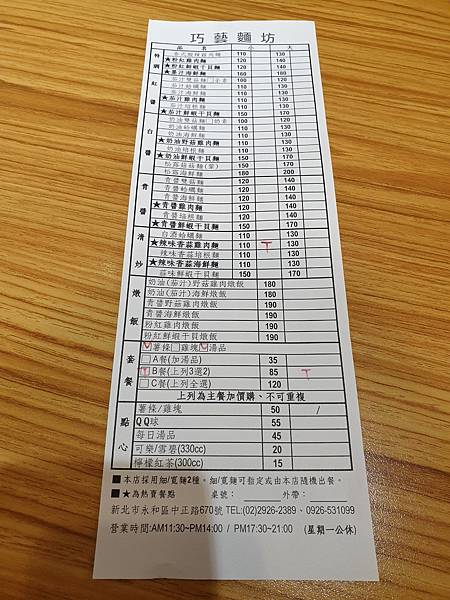 巧藝麵坊
品 名 小 大
特調 泰式酸辣雞肉麵 110 130
★粉紅雞肉麵 110 130
★粉紅鮮蝦干貝麵 160 180
★墨汁海鮮麵 160 180
紅醬 茄汁雙菇麵□全素 100 120
茄汁蛤蠣麵 110 130
茄汁海鮮麵 110 130
★茄汁雞肉麵 110 130
茄汁培根麵 110 130
★茄汁鮮蝦干貝麵 150 170
白醬 奶油雙菇麵□奶素 100 120
奶油蛤蠣麵 110 130
奶油海鮮麵 110 130
★奶油野菇雞肉麵 110 130
奶油培根麵 110 130
★奶油鮮蝦干貝麵 150 170
松露菇菇麵(葷) 150 170
松露海鮮麵 180 200
青醬 青醬雙菇麵 120 140
青醬蛤蠣麵 120 140
青醬海鮮麵 120 140
★青醬雞肉麵 120 140
青醬培根麵 120 140
★青醬鮮蝦干貝麵 150 170
清炒 白酒蛤蠣麵 110 130
★辣味香蒜雞肉麵 110 T 130
辣味香蒜培根麵 110 130
★辣味香蒜海鮮麵 110 130
蒜味鮮蝦干貝麵 150 170
燉飯 奶油(茄汁)野菇雞肉燉飯 180
奶油(茄汁)海鮮燉飯 180
青醬野菇雞肉燉飯 190
青醬海鮮燉飯 190
粉紅雞肉燉飯 190
粉紅海鮮燉飯 190
套餐 □薯條□雞塊□湯品
□A餐(加湯品) 35
□B餐(上列3選2) 85 T
□C餐(上列全選) 120
上列為主餐加價購、不可重複
點心 薯條/雞塊 50 /
QQ球 55
每日湯品 45
可樂/雪碧(330cc) 20
檸檬紅茶(300cc) 15
■本店採用細/寬麵2種。細/寬麵可指定或由本店隨機出餐。
■★為熱賣餐點 桌號： 外帶：
新北市永和區中正路670號 TEL:(02)2926-2389、0926-531099
營業時間:AM11:30~PM14:00 / PM17:30~21:00 (星期一公休)